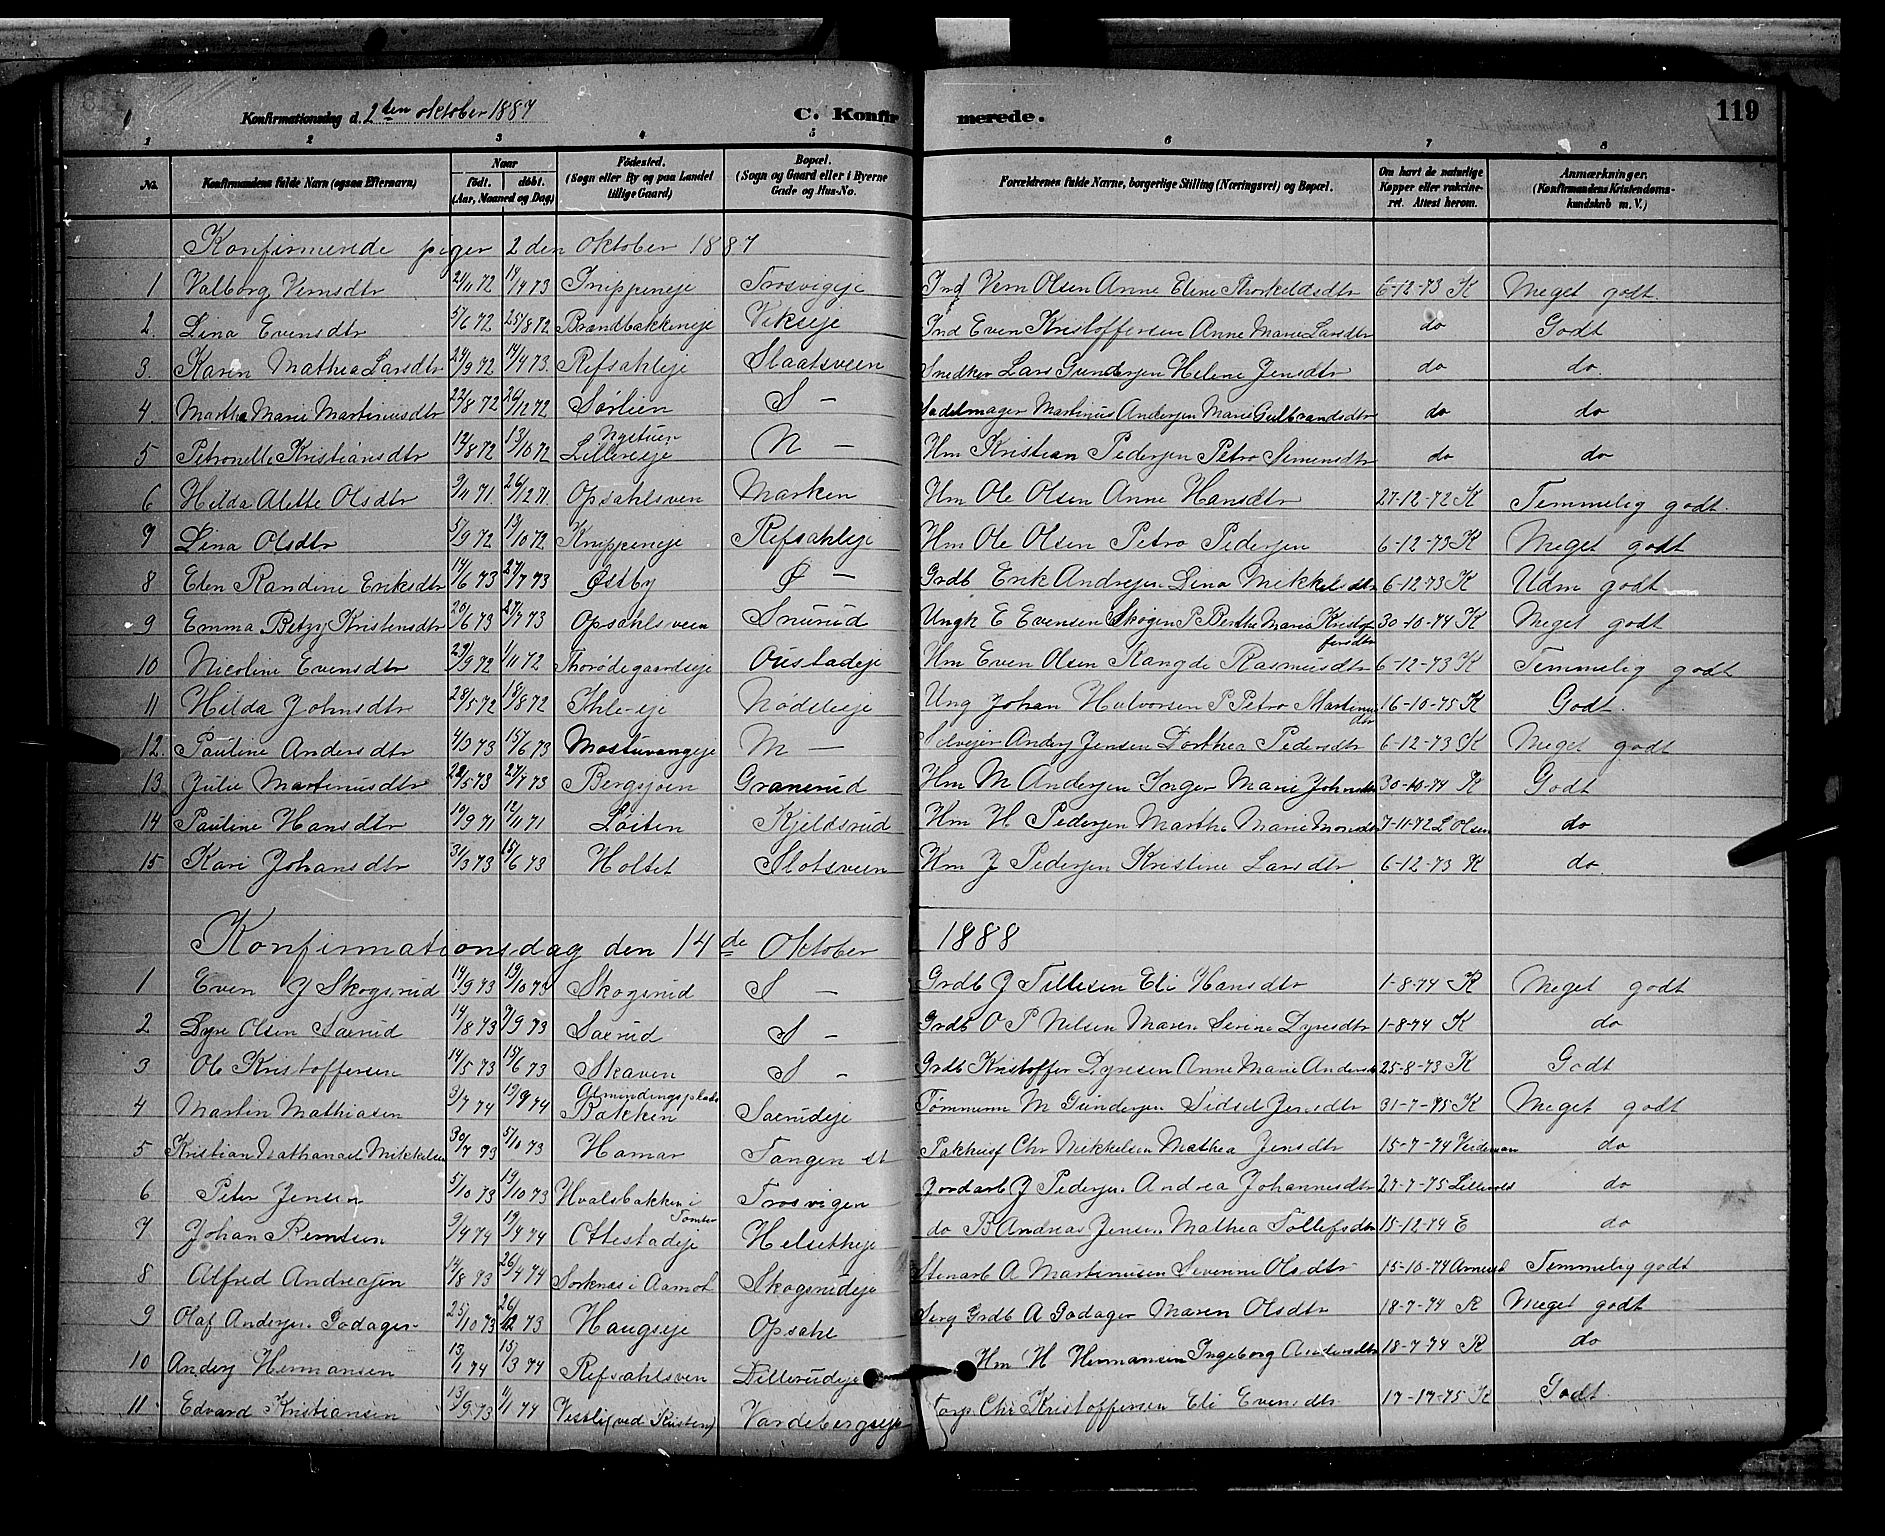 Konfirmationsdag d. 2den oktober 1887 C. Konfirmerede. 119
1 2 3 4 5 6 7 8
No. Konfirmandens fulde Navn (ogsaa Efternavn) Naar født. døbt. (Aar, Maaned og Dag) Fødested. (Sogn eller By og paa Landet tillige Gaard) Bopæl. (Sogn og Gaard eller i Byerne Gade og Hus-No. Forældrenes fulde Navne, borgerlige Stilling (Næringsvei) og Bopæl. Om havt de naturlige Kopper eller vakcineret. Attest herom. Anmærkninger. (Konfirmandens Kristendomskundskab m. V.)
Konfirmerede piger 2 den oktober 1887
1 Valborg Vernsdtr 21/11 72 14/4 73 Gnippeneje Trosvigeje Ind Vern Olsen Anne Eline Thorkeldsdtr 6-12-73 K Meget godt
2 Lina Evensdtr 5/6 72 25/8 72 Brændbakkeneje Vikseje Ind Even Kristoffersen Anne Marie Larsdtr do Godt
3. Karen Mathea Larsdtr 24/9 72 14/4 73. Refsahleje Slaatsveen Snedker Lars Gundersen Helene Jensdtr do do.
4 Martha Marie Martinusdtr 22/8 72 26/12 72 Sørlien S - Sadelmager Martinus Andersen Marie Gulbrandsdtr do do
5 Petronelle Kristiansdtr 12/8 72 13/10 72 Nystuen Lillereeje N - Hm Kristian Pedersen Petro Simensdtr do do
6 Hilda Alette Olsdtr 9/11 71. 26/12 71. Opsahlsven Marken Hm Ole Olsen Anne Hansdtr 27-12-72 K Temmelig godt.
7 Lina Olsdtr 5/9 72 13/10 72 Knippeneje Refsahleje Hm Ole Olsen Petro Pedersen 6-12-73 K Meget godt
8 Elen Randine Eriksdtr 14/6 73 27/7 73 Østby Ø - Grdb Erik Andresen Lina Mikkelsdtr 6-12-73 K Udm godt
9 Emma Betzy Kristensdtr 20/6 73 27/7 73 Opsahlsveen Snurud Ungk E Evensen Skogen P Berthe Maria Kristoffersdtr 30-10-74 K Meget godt
10 Nicoline Evensdtr 29/9 72 1/11 72 Thorødegaardseje Oustadeje Hm Even Olsen Rangdi Rasmusdtr 6-12-73 K Temmelig godt
11 Hilda Johnsdtr 28/5 72 18/8 72 Ihle-eje Nødeleje Ung Johan Halvorsen P Petra Martinusdtr 16-10-75 K Godt.
12. Pauline Andersdtr 4/3 73 15/6 73 Mostuvangeje M - Selvejer Anders Jensen Dorthea Pedersdtr 6-12-73 K Meget godt
13 Julie Martinusdtr 22/5 73 27/7 73 Bergsjøen Granerud Hm M Andersen Inger Marie Johnsdtr 30-10-74 K Godt
14 Pauline Hansdtr 19/9 71 12/11 71 Løiten Kjeldsrud Hm H Pedersen Marthe Marie Monsdtr 7-11-72 L Olsen do
15 Kari Johansdtr 31/3 73 15/6 73 Holset Slotsveen Hm J Pedersen Kristine Larsdtr 6-12-73 K do
Konfirmationsdag den 14de Oktober 1888
1 Even J Skogsrud 14/9 73 19/10 73 Skogsrud S - Grdb J Tillesen Eli Hansdtr 1-8-74 K Meget godt
2 Dyre Olsen Saerud 14/8 73 7/9 73 Saerud S - Grdb O P Nilsen Maren Serine Dyresdtr 1-8-74 K do
3 Ole Kristoffersen 14/5 73 15/6 73 Skaven S - Grdb Kristoffer Dyresen Anne Marie Andersd 25-8-73 K Godt
4 Martin Mathiasen 3/7 74 19/9 74 Almindingsplads Bakken Saerudeje Tømmerm M Gundersen Sidsel Jensdtr 31-7-75 K Meget godt
5 Kristian Nathanael Mikkelsen 30/7 73 5/10 73 Hamar Tangen st Pakhusf Chr Mikkelsen Mathea Jensdtr 15-7-74 Veideman do
6 Peter Jensen 5/10 73 19/10 73 Hvalsbakken i Tomter Trosvigen Jordarb J Pedersen Andrea Johannesdtr 27-7-75 Lillevold do
7 Johan Remtsen 9/4 74 19/4 74 Ottestadeje Helsetheje do B Andreas Jensen Mathea Tollefsdtr 15-12-74 E do
8 Alfred Andreasen 14/8 73 26/4 74 Sorknæs i Aamot Skogsrudeje Stenarb A Martinusen Severine Olsdtr 15-10-74 Arnesd Temmelig godt
9 Olaf Andersen Godager 25/10 73 26/12 73 Haugseje Opsahl Serg Grdb A Godager Maren Olsdtr 18-7-74 R Meget godt
10 Anders Hermansen 13/1 74 15/3 74 Refsahlsven Dillerudeje Hm H Hermansen Ingeborg Andersdtr 18-7-74 R do
11 Edvard Kristiansen 13/9 73 1/1 74 Vestli (ved Kirsten) Vardebergseje Torp Chr Kristoffersen Eli Evensdtr 17-17-75 K Godt